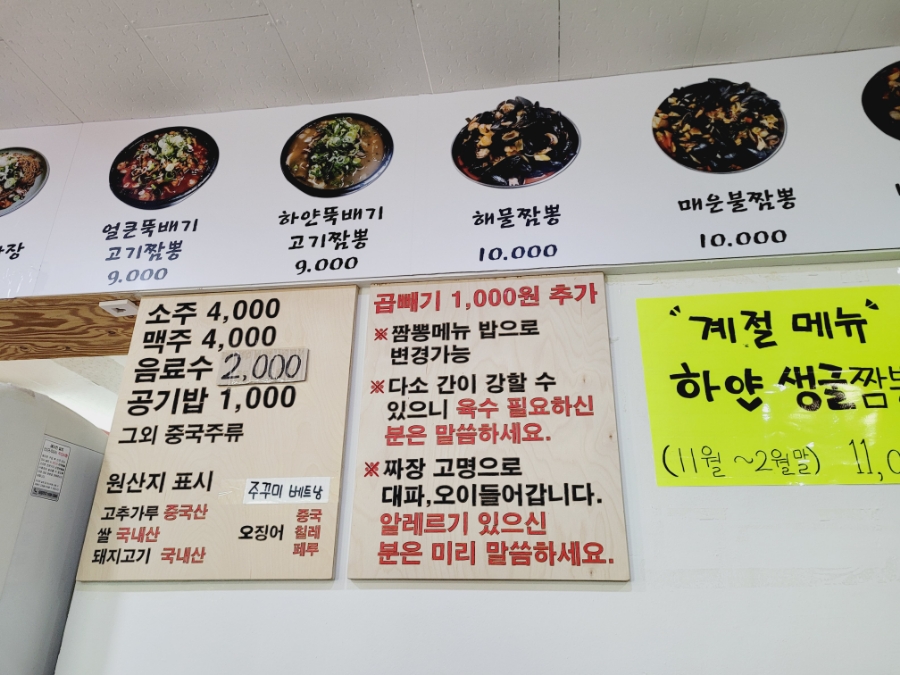 얼큰뚝배기
고기짬뽕
9.000
하얀뚝배기
고기짬뽕
9.000
해물짬뽕
10.000
매운불짬뽕
10.000
소주 4,000
맥주 4,000
음료수 2,000
공기밥 1,000
그외 중국주류
원산지 표시
주꾸미 베트남
고추가루 중국산
쌀 국내산
돼지고기 국내산
오징어 중국
칠레
페루
곱빼기 1,000원 추가
※짬뽕메뉴 밥으로
변경가능
※다소 간이 강할 수
있으니 육수 필요하신
분은 말씀하세요.
※ 짜장 고명으로
대파,오이들어갑니다.
알레르기 있으신
분은 미리 말씀하세요.
"계절 메뉴"
하얀 생굴짬뽕
(11월 ~2월말) 11,0